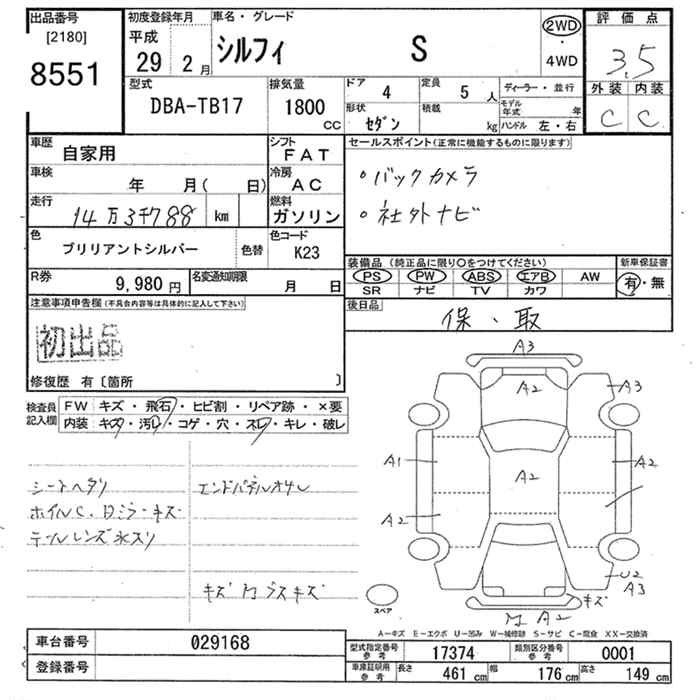 出品番号 初度登録年月 車名・グレード 評価点
[2180] 平成 2WD
8551 29 2月 シルフィ S ・ 3.5
4WD
型式 排気量 ドア 4 定員 5人 ディーラー・並行 外装 内装
DBA-TB17 1800 CC 形状 セダン 積載 kg モデル年式 年 C C
ハンドル 左・右
車歴 自家用 シフト FAT セールスポイント(正常に機能するものに限ります)
車検 年 月( 日) 冷房 AC ・バックカメラ
走行 14万3千788 km 燃料 ガソリン ・社外ナビ
色 ブリリアントシルバー 色替 色コード K23
装備品(純正品に限り〇をつけてください) 新車保証書
PS PW ABS エアB AW 有・無
R券 9,980円 名変通知期限 月 日 SR ナビ TV カワ
注意事項申告欄(不具合内容等は具体的に記入して下さい) 後日品
初出品 保・取
修復歴 有〔箇所 〕
検査員記入欄 FW キズ・飛石・ヒビ割・リペア跡・×要
内装 キズ・汚レ・コゲ・穴・スレ・キレ・破レ
シートヘタリ エンドパネルオサレ
ホイルC、
テールレンズ水スリ
キズ
A3
A2 A3
A1 A2 A2
A2
U2
A3
キズ
スペア A2
A-キズ E-エクボ U-凹み W-補修跡 S-サビ C-腐食 XX-交換済
車台番号 029168 型式指定番号 参考 17374 類別区分番号 参考 0001
登録番号 車庫証明用 参考 長さ 461cm 幅 176cm 高さ 149cm